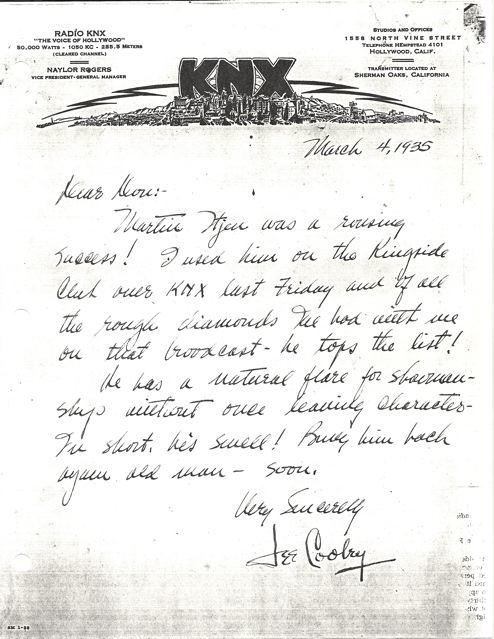 RADIO KNX
"THE VOICE OF HOLLYWOOD"
50,000 WATTS - 1050 KC - 285.5 METERS
(CLEARED CHANNEL)
NAYLOR ROGERS
VICE PRESIDENT-GENERAL MANAGER
KNX
STUDIOS AND OFFICES
1558 NORTH VINE STREET
TELEPHONE HEMPSTEAD 4101
HOLLYWOOD, CALIF.
TRANSMITTER LOCATED AT
SHERMAN OAKS, CALIFORNIA
March 4, 1935
Dear Don:-
Martin Itjen was a rousing
success! I used him on the Ringside
Club over KNX last Friday and of all
the rough diamonds I've had with me
on that broadcast - he tops the list!
He has a natural flare for showman-
ship without once leaving character-
In short, he's swell! Bring him back
again old man - soon.
Very Sincerely
SM 1-35